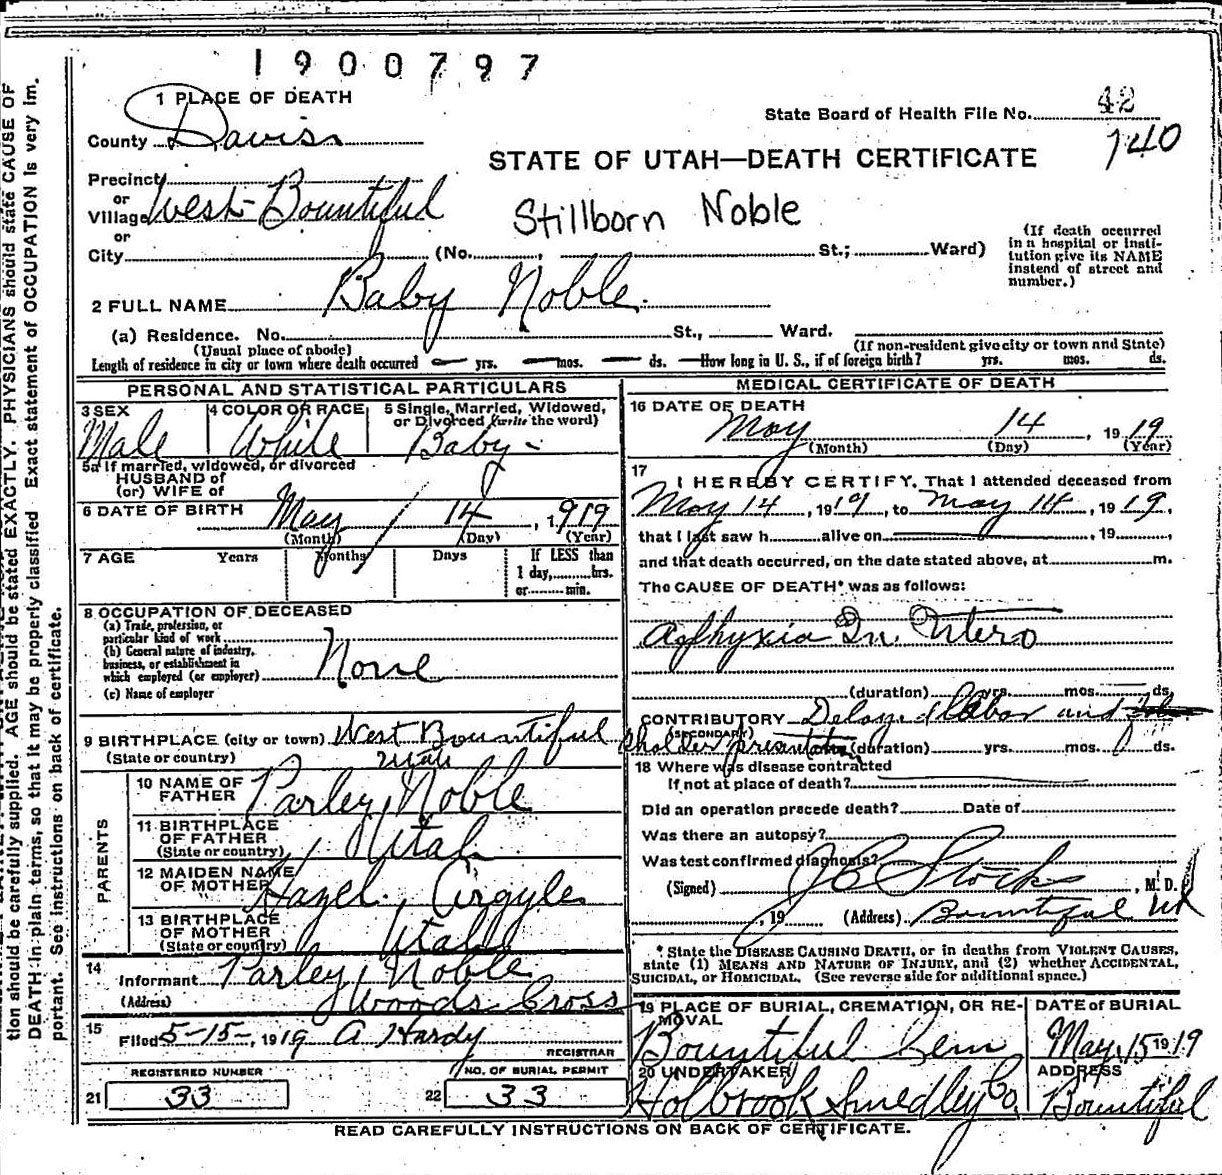 1900797
1 PLACE OF DEATH
State Board of Health File No. 42
140
County Daviss
STATE OF UTAH—DEATH CERTIFICATE
Precinct
or
Village West Bountiful
Stillborn Noble
or
City (No. , St.; Ward)
(If death occurred
in a hospital or insti-
tution give its NAME
instead of street and
number.)
2 FULL NAME Baby Noble.
(a) Residence. No. St., Ward.
(Usual place of abode)
(If non-resident give city or town and State)
Length of residence in city or town where death occurred — yrs. — mos. — ds. — How long in U. S., if of foreign birth? yrs. mos. ds.
PERSONAL AND STATISTICAL PARTICULARS
3 SEX
Male
4 COLOR OR RACE
White
5 Single, Married, Widowed,
or Divorced (write the word)
Baby -
5a If married, widowed, or divorced
HUSBAND of
(or) WIFE of
6 DATE OF BIRTH May 14, 1919
(Month) (Day) (Year)
7 AGE Years Months Days
If LESS than
1 day, hrs.
or min.
8 OCCUPATION OF DECEASED
(a) Trade, profession, or
particular kind of work
(b) General nature of industry,
business, or establishment in
which employed (or employer) None
(c) Name of employer
9 BIRTHPLACE (city or town) West Bountiful
(State or country) Utah
PARENTS
10 NAME OF
FATHER Parley Noble
11 BIRTHPLACE
OF FATHER
(State or country) Utah
12 MAIDEN NAME
OF MOTHER Hazel Argyle
13 BIRTHPLACE
OF MOTHER
(State or country) Utah
14
Informant Parley Noble
(Address) Woods Cross
15
Filed 5-15-, 1919 A Hardy
REGISTRAR
REGISTERED NUMBER
21 33
NO. OF BURIAL PERMIT
22 33
MEDICAL CERTIFICATE OF DEATH
16 DATE OF DEATH
May 14, 1919
(Month) (Day) (Year)
17
I HEREBY CERTIFY, That I attended deceased from
May 14, 1919, to May 14, 1919,
that I last saw h alive on , 19 ,
and that death occurred, on the date stated above, at m.
The CAUSE OF DEATH* was as follows:
Asphyxia In Utero
(duration) yrs. mos. ds.
CONTRIBUTORY Delayed labor and
(SECONDARY)
sholder presentation (duration) yrs. mos. ds.
18 Where was disease contracted
If not at place of death?
Did an operation precede death? Date of
Was there an autopsy?
Was test confirmed diagnosis?
(Signed) J C Stocks, M. D.
, 19 (Address) Bountiful Ut
* State the DISEASE CAUSING DEATH, or in deaths from VIOLENT CAUSES,
state (1) MEANS AND NATURE OF INJURY, and (2) whether ACCIDENTAL,
SUICIDAL, or HOMICIDAL. (See reverse side for additional space.)
19 PLACE OF BURIAL, CREMATION, OR RE-
MOVAL
Bountiful Cem
DATE OF BURIAL
May 15 1919
20 UNDERTAKER
Holbrook Smedley Co.
ADDRESS
Bountiful
READ CAREFULLY INSTRUCTIONS ON BACK OF CERTIFICATE.
tion should be carefully supplied. AGE should be stated EXACTLY. PHYSICIANS should state CAUSE OF
DEATH in plain terms, so that it may be properly classified Exact statement of OCCUPATION is very im.
portant. See instructions on back of certificate.